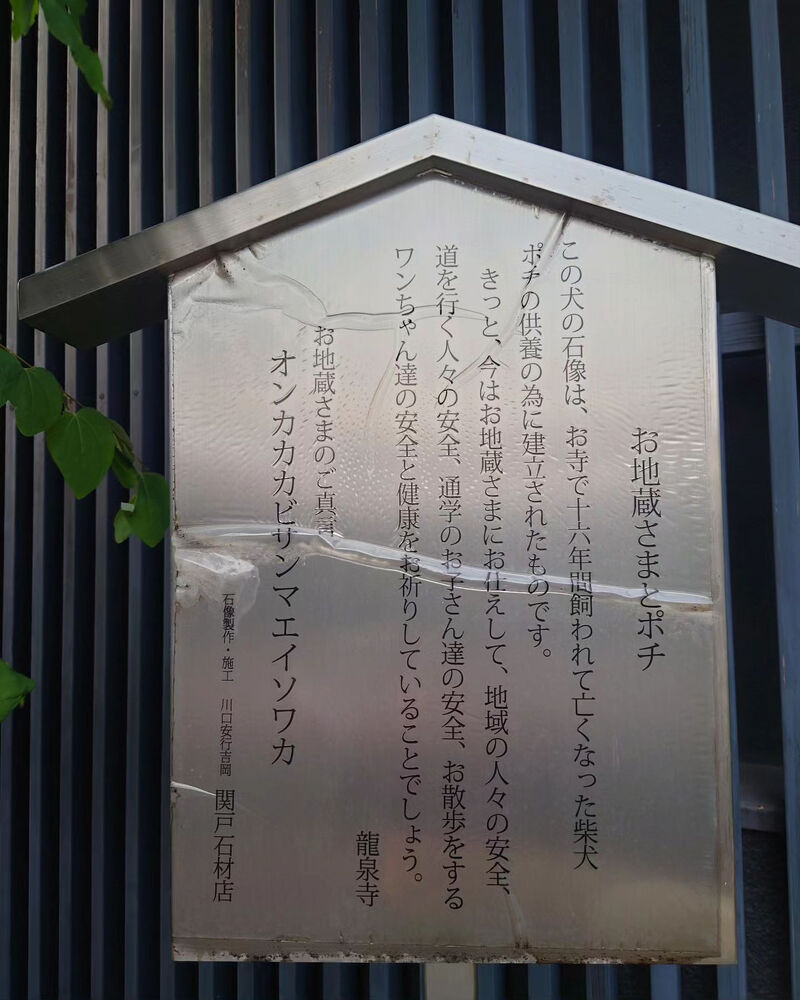 お地蔵さまとポチ
この犬の石像は、お寺で十六年間飼われて亡くなった柴犬
ポチの供養の為に建立されたものです。
きっと、今はお地蔵さまにお仕えして、地域の人々の安全、
道を行く人々の安全、通学のお子さん達の安全、お散歩をする
ワンちゃん達の安全と健康をお祈りしていることでしょう。
龍泉寺
お地蔵さまのご真言
オンカカカビサンマエイソワカ
石像製作・施工 川口安行吉岡 関戸石材店